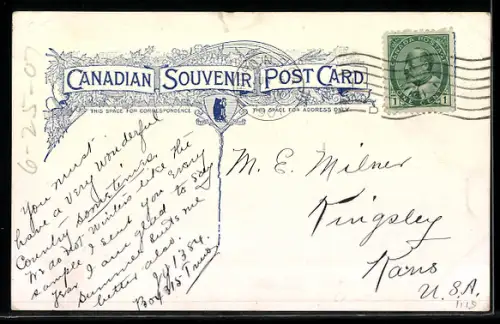 6-25-07
CANADIAN SOUVENIR POST CARD
THIS SPACE FOR CORRESPONDENCE
THIS SPACE FOR ADDRESS ONLY
CANADA POSTAGE
1 1
You must
have a very wonderful
Country sometimes.
We do not Winters like the
sample I sent you every
year I am glad to say
Summer suits me
better also.
1384
Box 515
M. E. Milner
Kingsley
Kans
U.S.A.